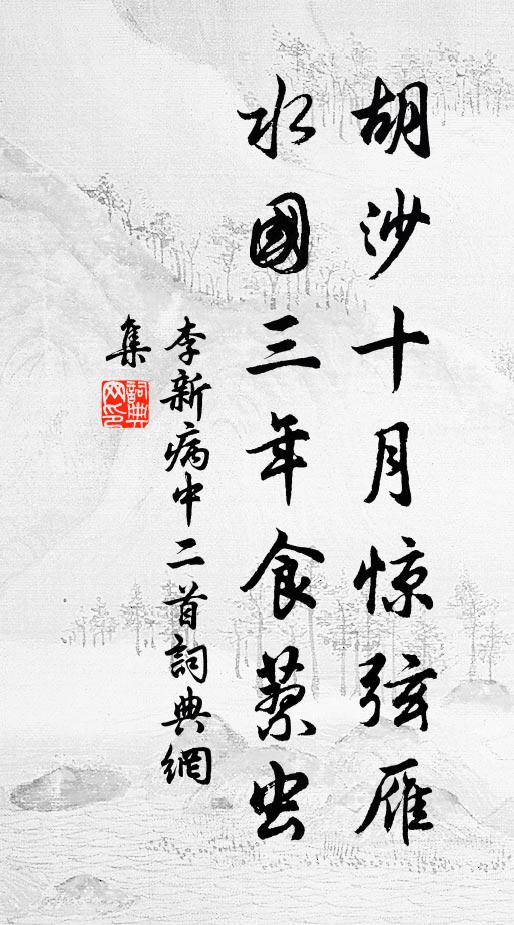 胡沙十月惊弦雁
水國三年食蓼虫
李新病中二首詞典網
集
詞典
网印